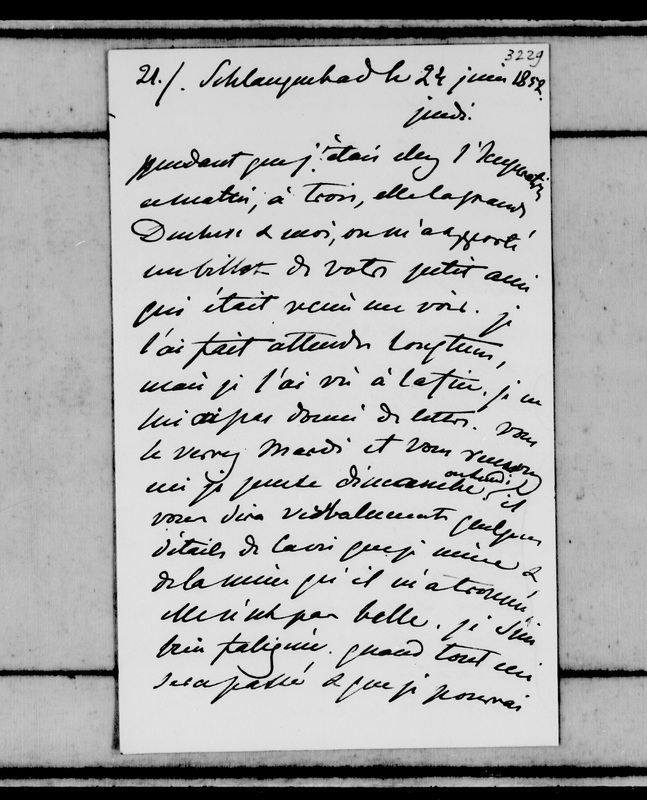 3229
21./. Schlangenbad le 24 juin 1852.
jeudi.
pendant que j'étais chez l'Impératrice
ce matin, à trois, elle la grande
Duchesse & moi, on m'a apporté
un billet de votre petit ami
qui était venu me voir. je
l'ai fait attendre longtems,
mais je l'ai vu à la fin. je ne
lui ai pas donné de lettre. vous
le verrez Mardi et vous
ceci je pense dimanche ou lundi. il
vous dira verbalement quelques
détails de la vie que je mène &
de la mine qu'il m'a trouvée
elle n'est pas belle. je suis
bien fatiguée. quand tout ceci
sera passé & que je pourrai